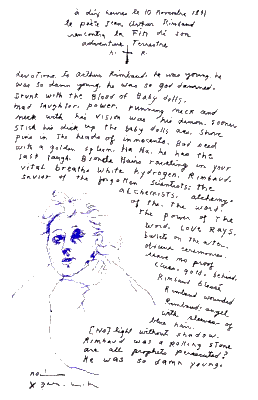 à dix heures le 10 Novembre 1891
le poète Jean Arthur Rimbaud
rencontra le Fin de son
adventure Terrestre
h. R.
devotions To Arthur Rimbaud. he was young. he
was so damn young. he was so god damned.
Drunk with the Blood of Baby dolls.
had laughter. power. running neck and
neck with his vision was his demon. sooner
stick his dick up the baby dolls ass. shove
pins in the heads of innocents. Bad seed
with a golden spleen. Ha Ha. he has the
last laugh. Blonde Hairs radiating in your
vital breathe white hydrogen. Rimbaud.
savior of the forgotten scientists: the
alchemists. alchemy.
of the. The word.
The power of The
word. LOVE RAYS.
bullets on the altar.
obscure ceremonies.
leave no proof
clues. gold. behind.
Rimbaud Bleast
Rimbaud wounded
Rimbaud: angel
with sleeves of
blue hair.
[NO] light without shadow.
Rimbaud was a rolling stone
are all prophets persecuted?
He was so damn young.
no